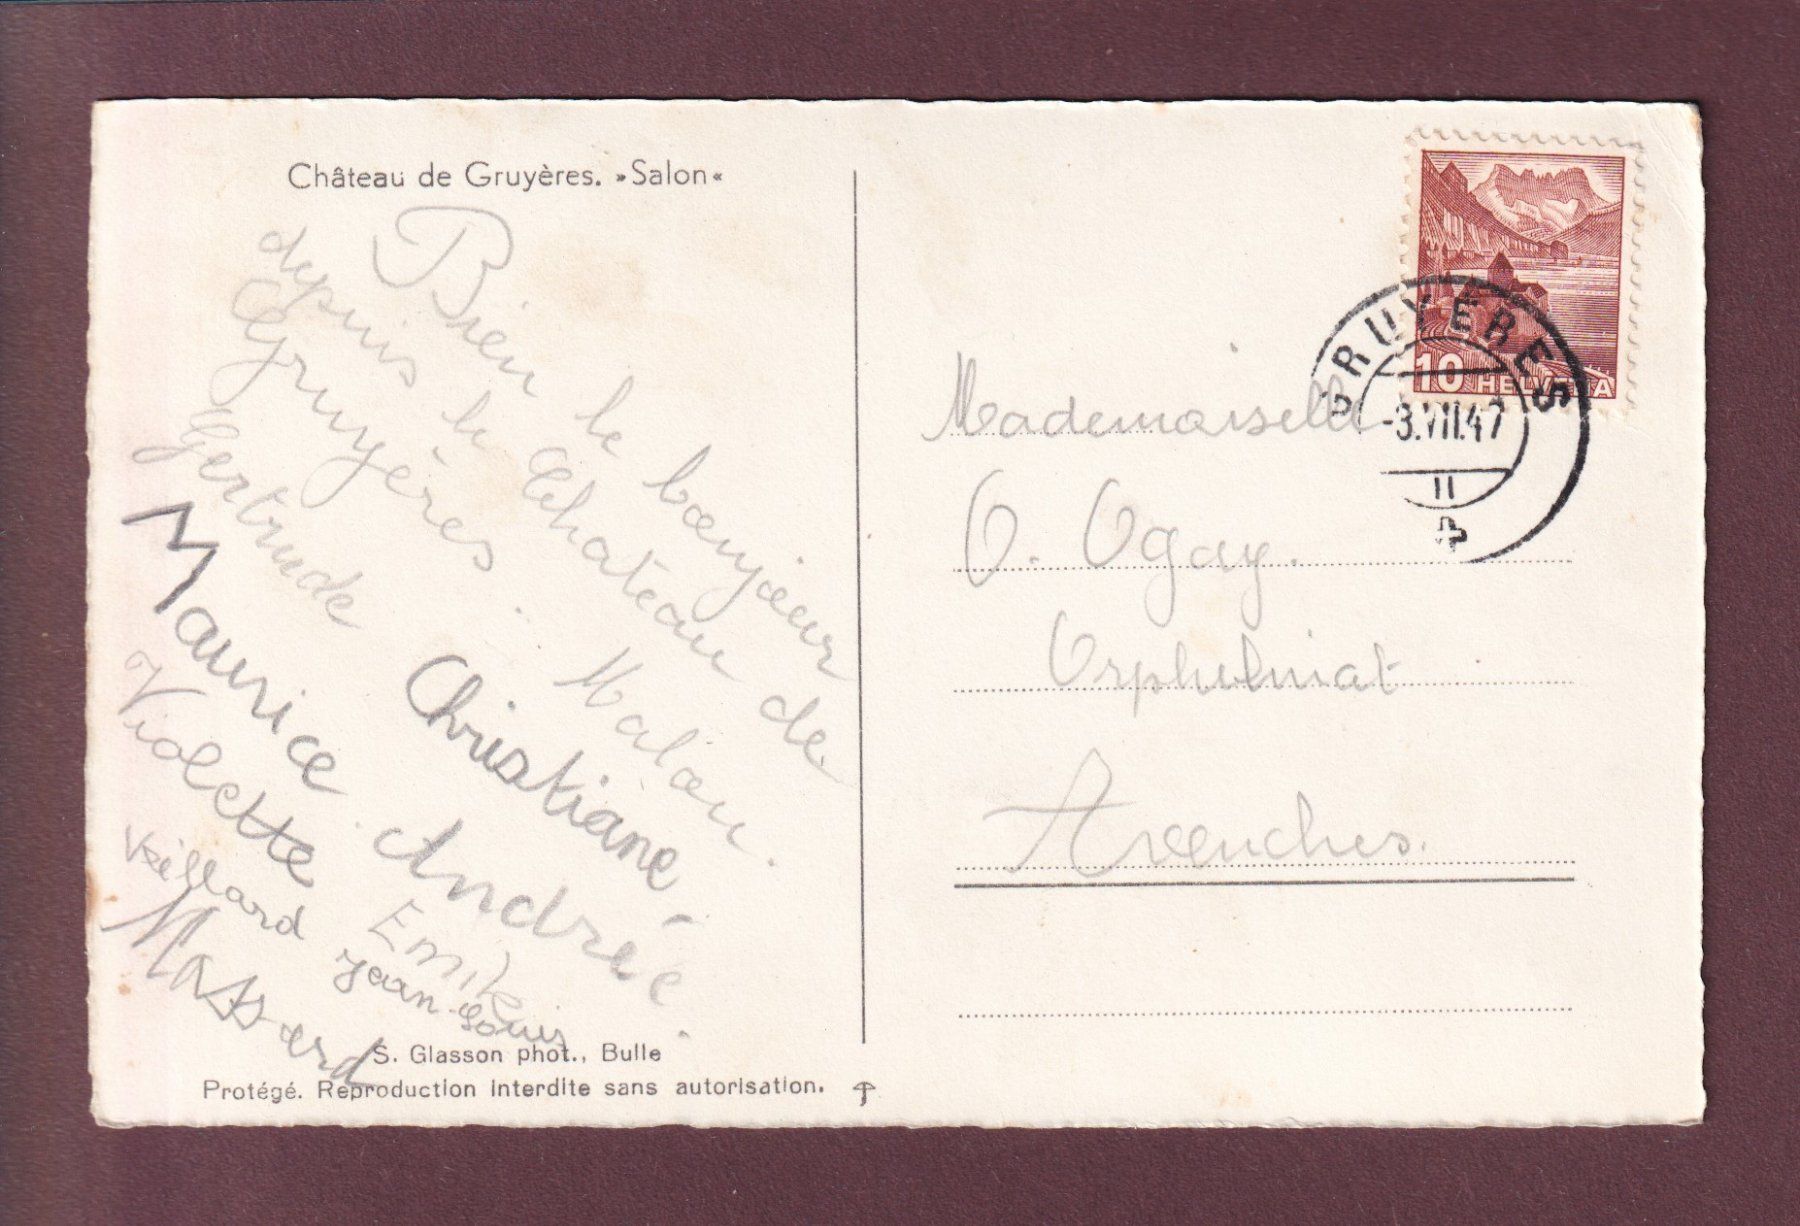 Château de Gruyères. »Salon«
Bien le boujour
depuis le Château de
Gruyères. Malou.
Gertrude
Maurice Christiane
Violette Andrée.
Veillard Emile
Jean-Louis
Massard
S. Glasson phot., Bulle
Protégé. Reproduction interdite sans autorisation.
10 HELVETIA
GRUYÈRES
-3.VII.47
II
Mademoiselle
O. Ogay.
Orphelinat
Avenches.